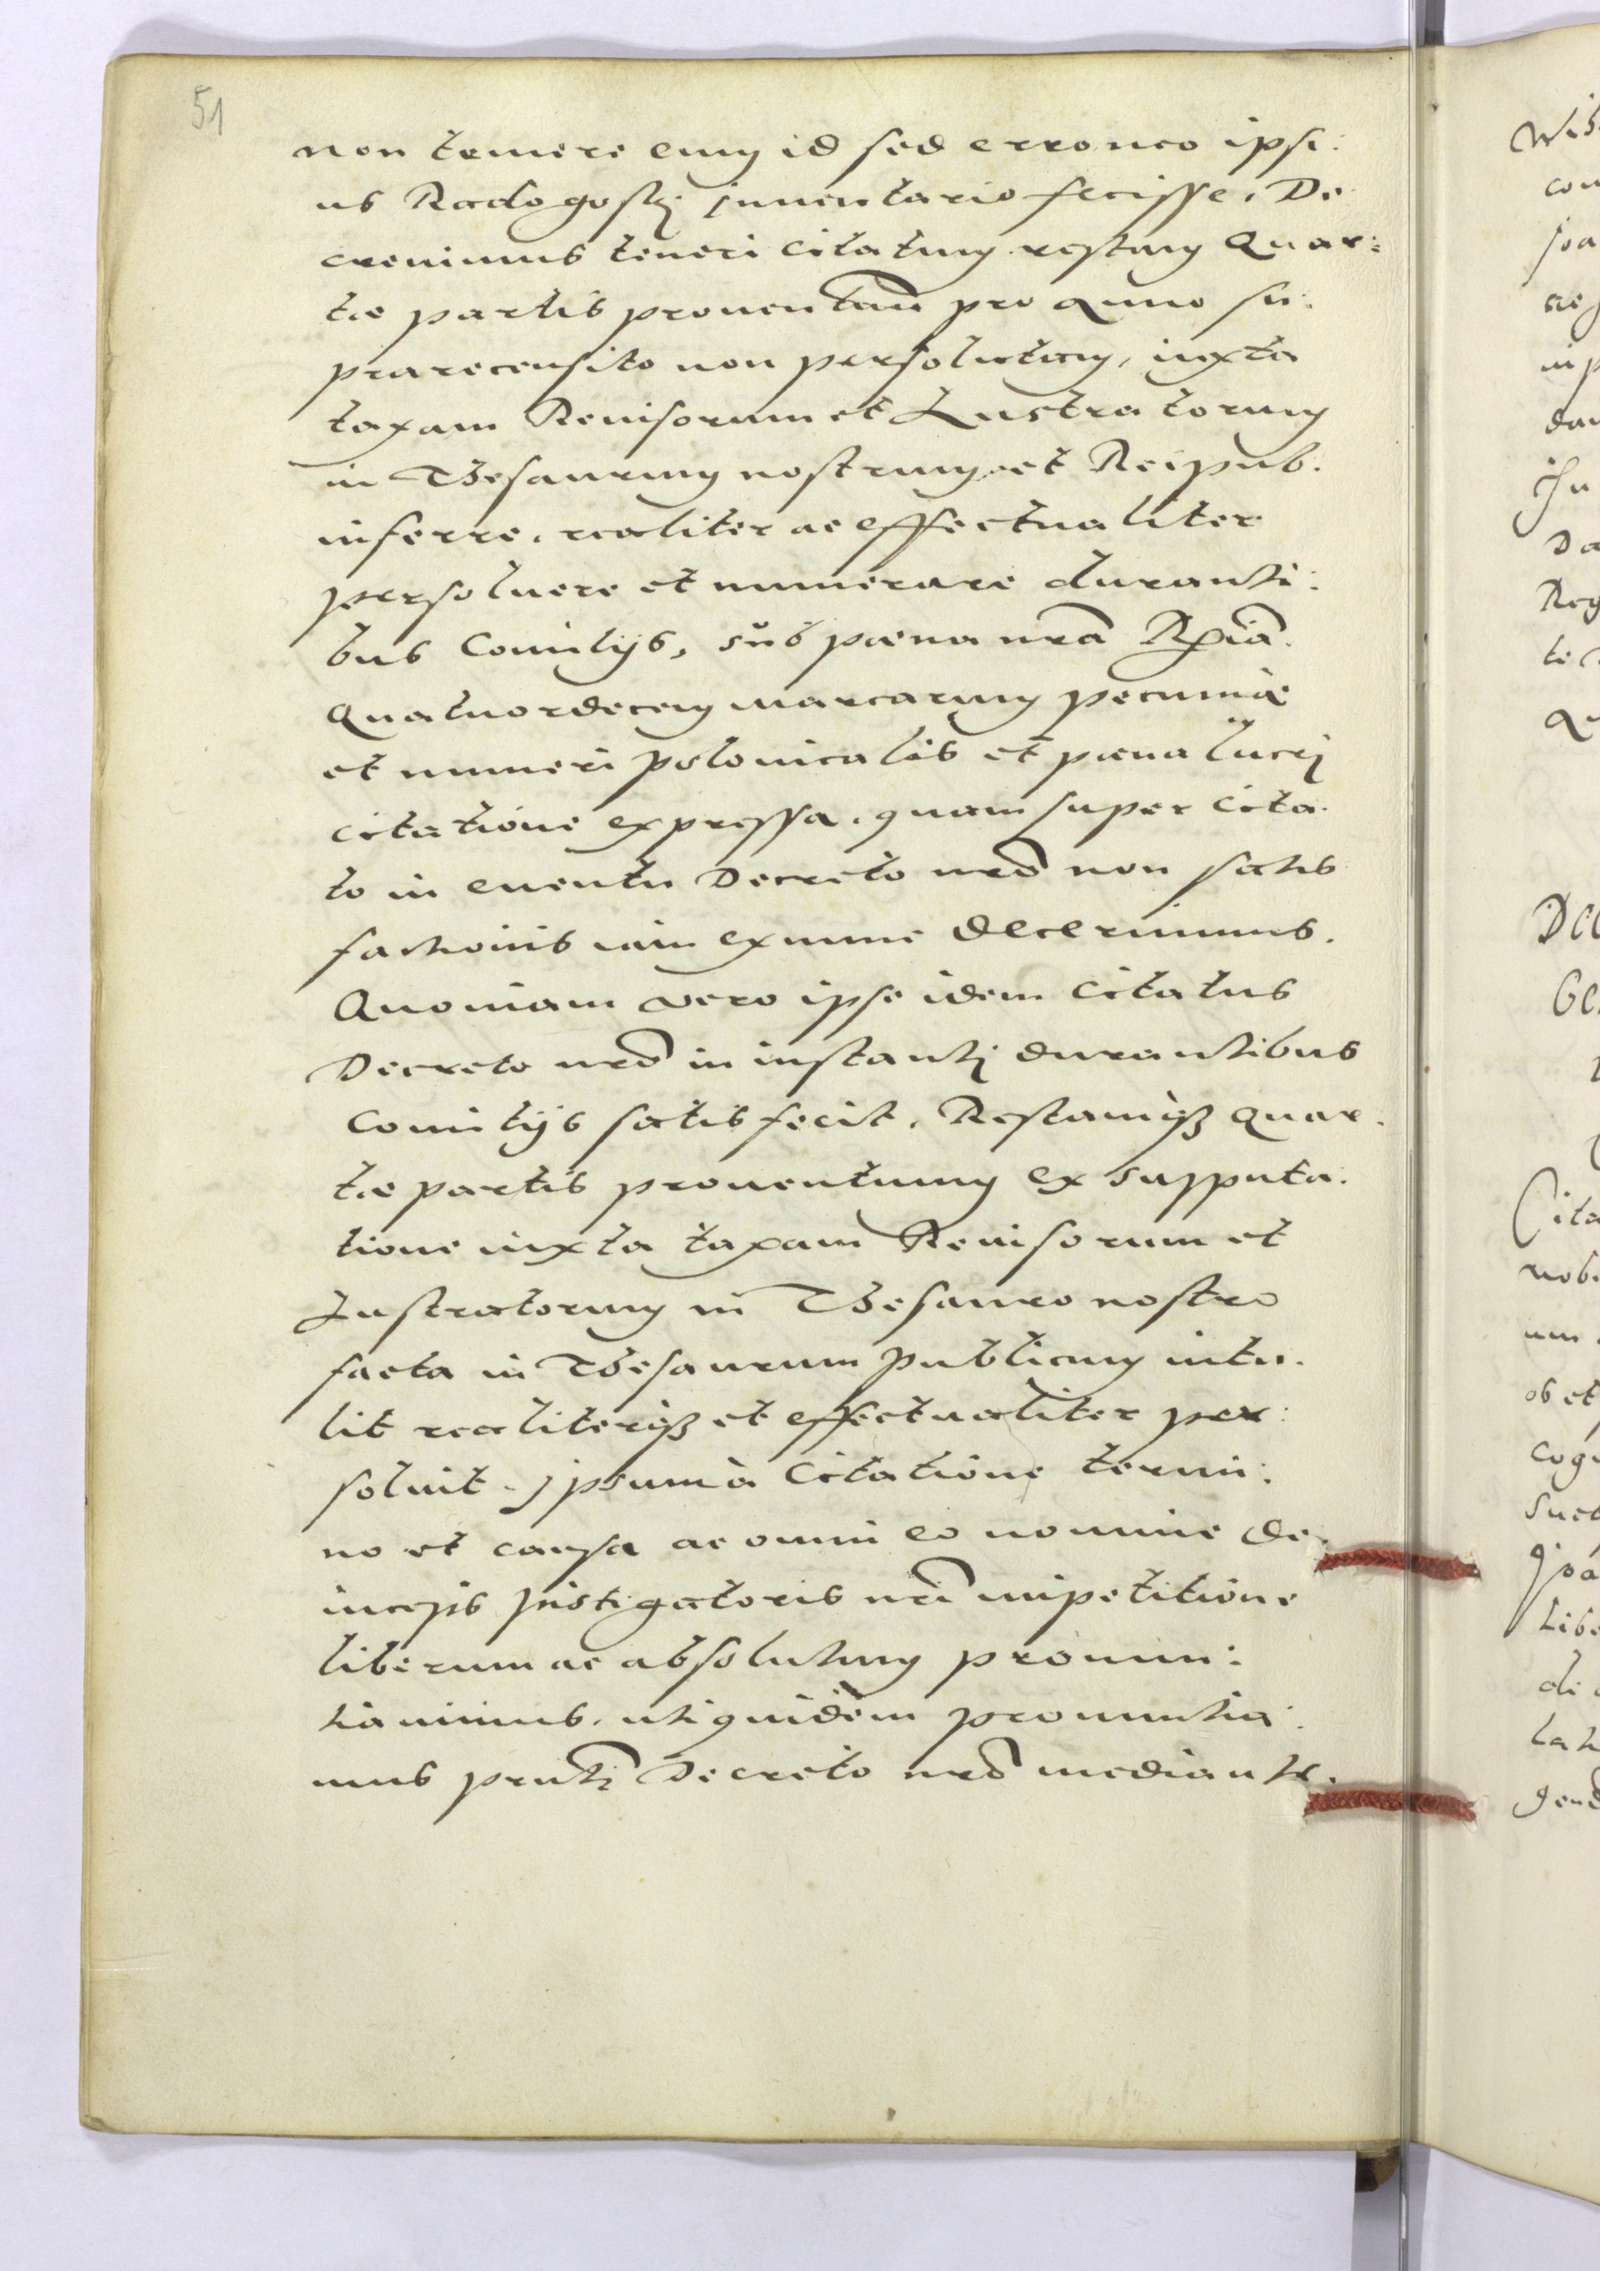 51
non temere eum id sed erroneo ipsi:
us Radogosti Inuentario fecisse. De
creuimus teneri Citatum restam Quar:
tæ partis prouentuũ pro Anno su:
prarecensito non persolutam, iuxta
taxam Reuisorum et Lustratorum
in Thesaurum nostrum et Reipub:
inferre, realiter ac effectualiter
persoluere et numerare duranti:
bus Comitijs, sub pæna nrã
Quatuordecem marcarum pecuniæ
et numeri polonicalis et pæna lucri
citatione expressa, quam super Cita:
to in euentu Decreto nrõ non satis
factionis iam ex nunc decernimus.
Quoniam vero ipse idem Citatus
Decreto nrõ in instanti durantibus
Comitijs satisfecit, Restamqȝ Quar:
tæ partis prouentuum ex supputa:
tione iuxta taxam Reuisorum et
Lustratorum in Thesauro nostro
facta in Thesaurum publicum intu:
lit realiterqȝ et effectualiter per:
soluit. Ipsum à Citatione termi:
no et causa ac omni eo nomine de:
inceps Instigatoris nri impetitione
liberum ac absolutum pronun:
tiauimus, uti quidem pronuntia:
mus pñti Decreto nrõ mediante.
Cita
nobi
um
ob et
Libe
di